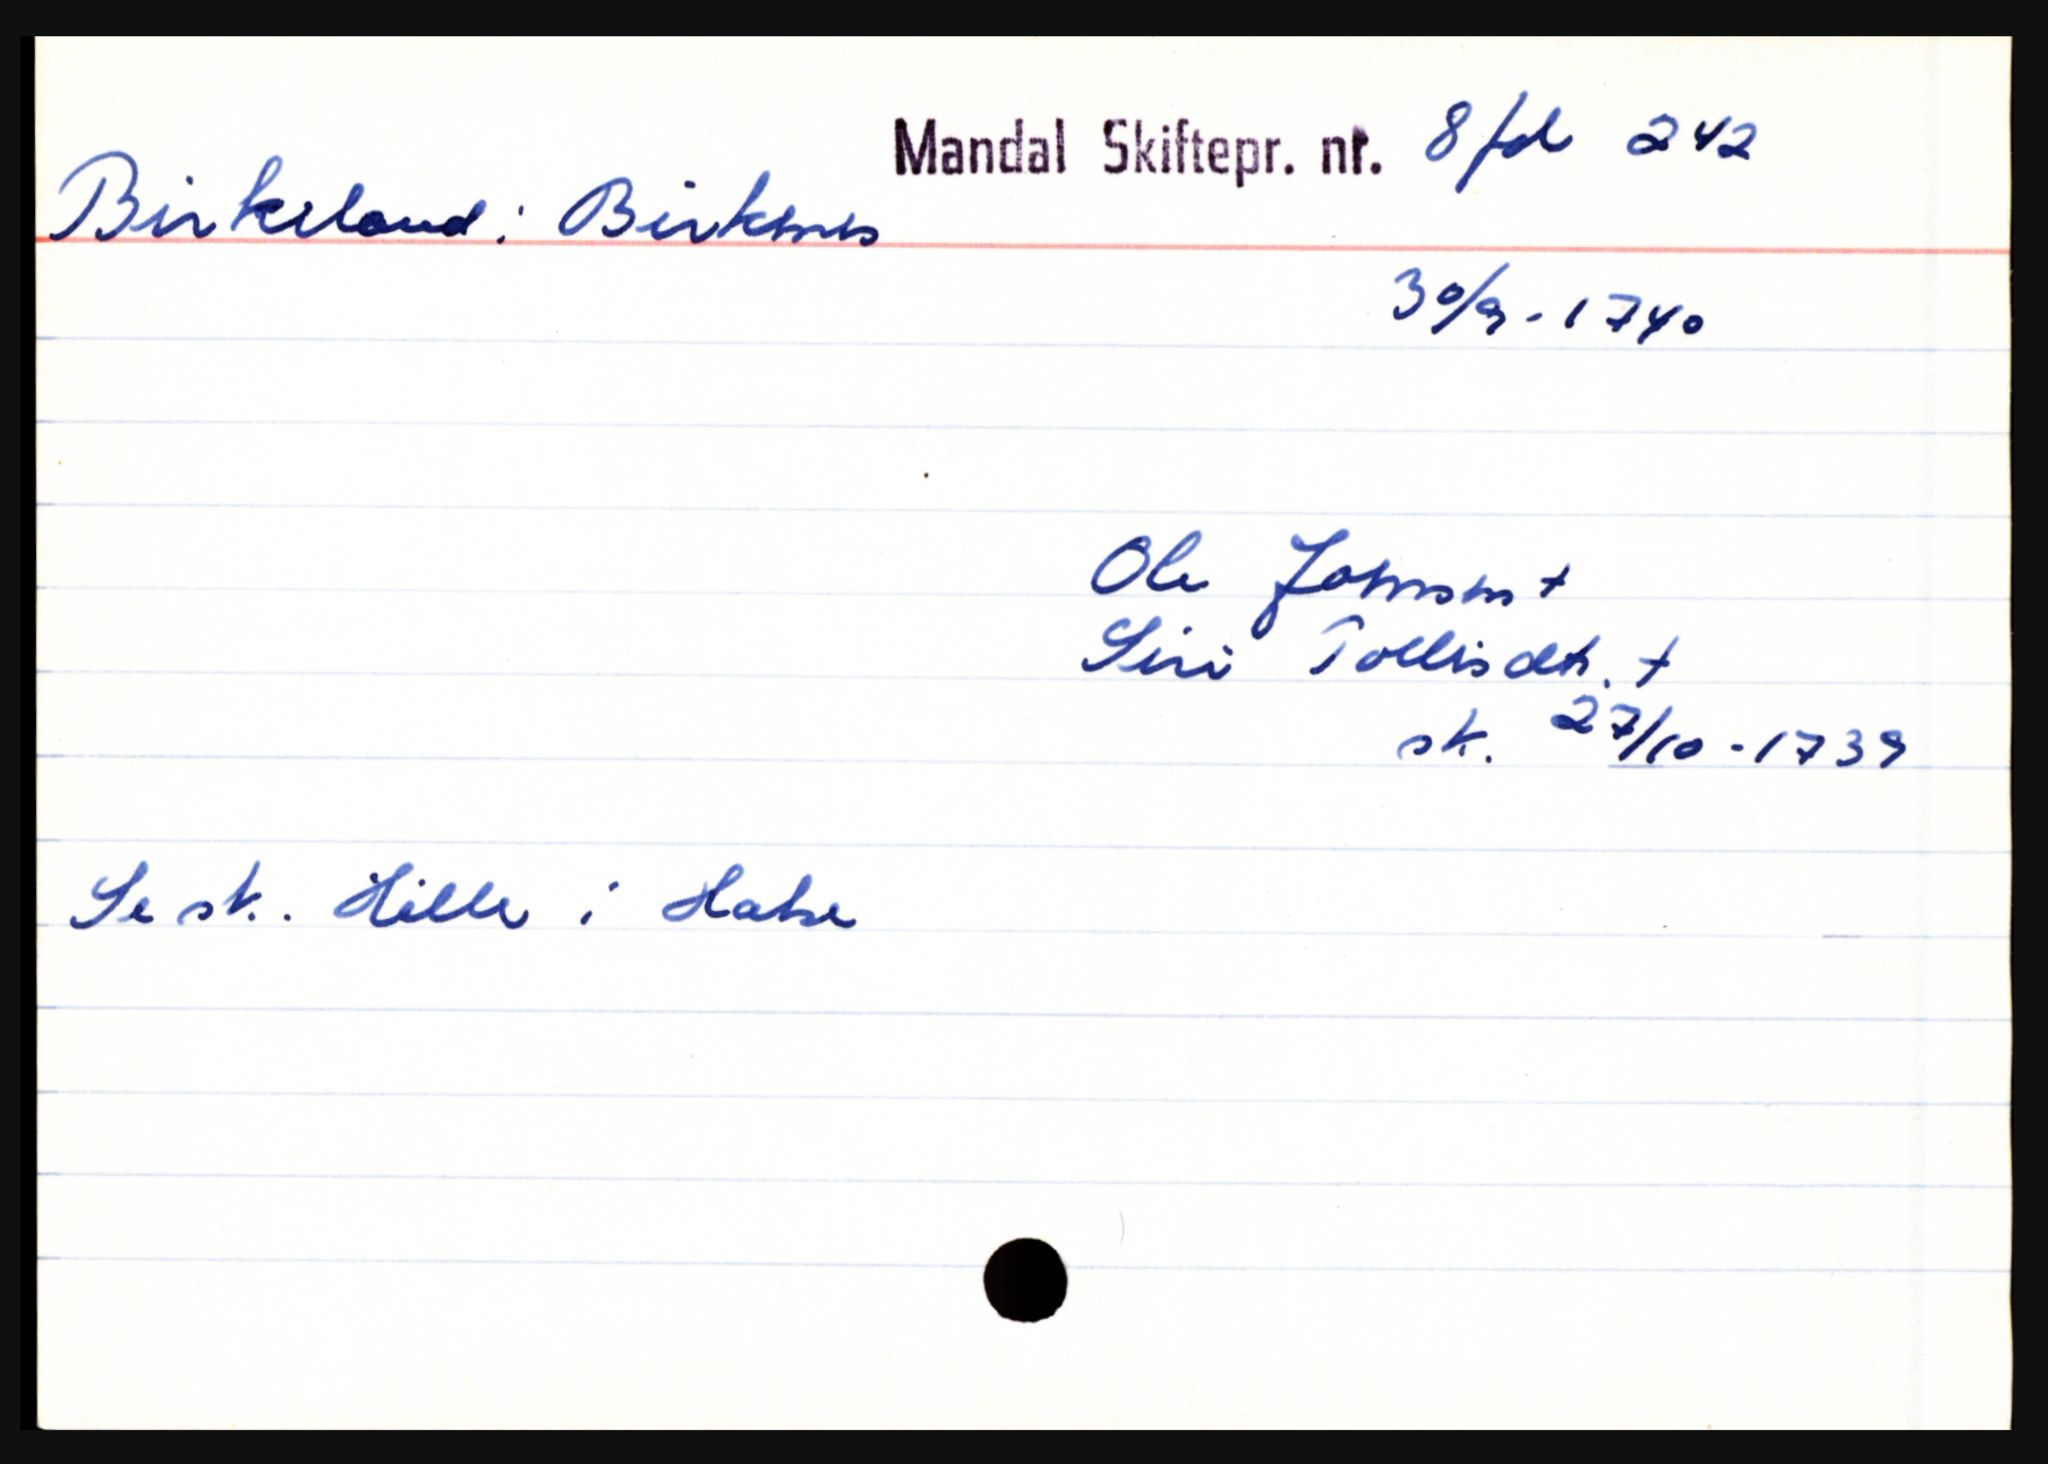 Mandal Skiftepr. nr. 8 fol 242
Birkeland i Birkenes
30/9 - 1740
Ole Johnsen +
Siri Tollisdtr. +
sk. 27/10 - 1739
Se sk. Hille i Halse